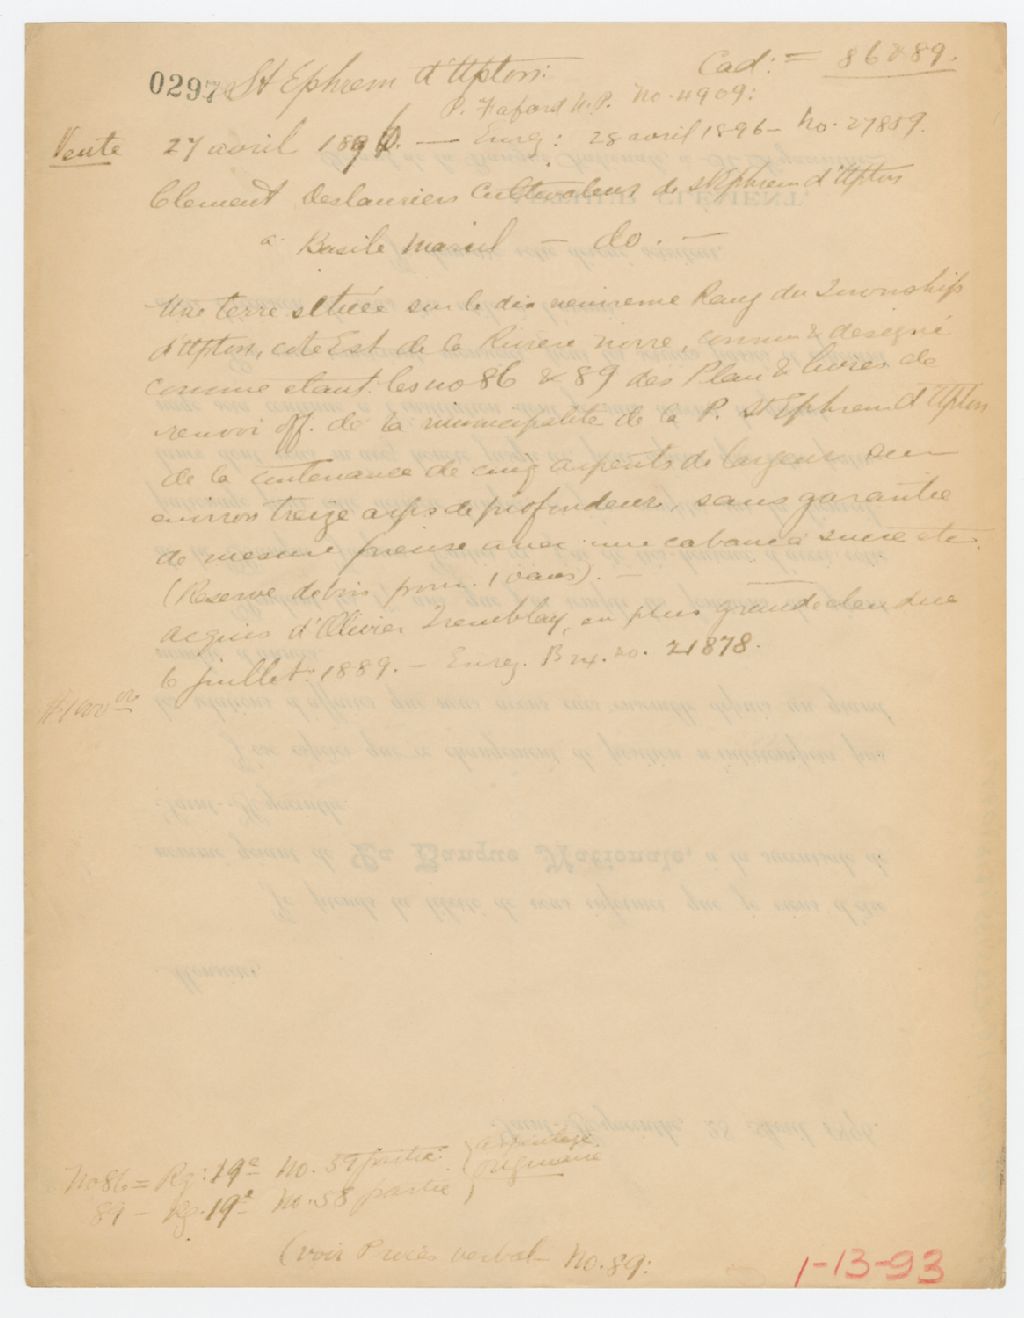 0297 St Ephrem d'Upton: Cad: = 86 & 89.
P. Faford N.P. No. 4909:
Vente 27 avril 1896. — Enrg: 28 avril 1896 — No. 27889.
Clement Deslauriers Cultivateur de St Ephrem d'Upton
à Basile — do. —
Une terre située sur le dix neuvieme Rang du Township
d'Upton, coté Est de la Riviere noire, connu & designé
comme étant les no 86 & 89 des Plan & livres de
renvoi off. de la municipalité de la P. St Ephrem d'Upton
de la contenance de cinq arpents de largeur sur
environ treize arps de profondeur, sans garantie
de mesure precise avec une cabane à sucre etc.
(Reserve de bois pour 10 ans). —
acquis d'Olivier Tremblay, en plus grande etendue
6 juillet 1889. — Enreg. B 24. no. 21878.
No 86 = Rg: 19e No. 59 partie } arpentage
89 — Rg. 19e No. 58 partie } primitif
(voir Procès verbal No. 89:
1-13-93